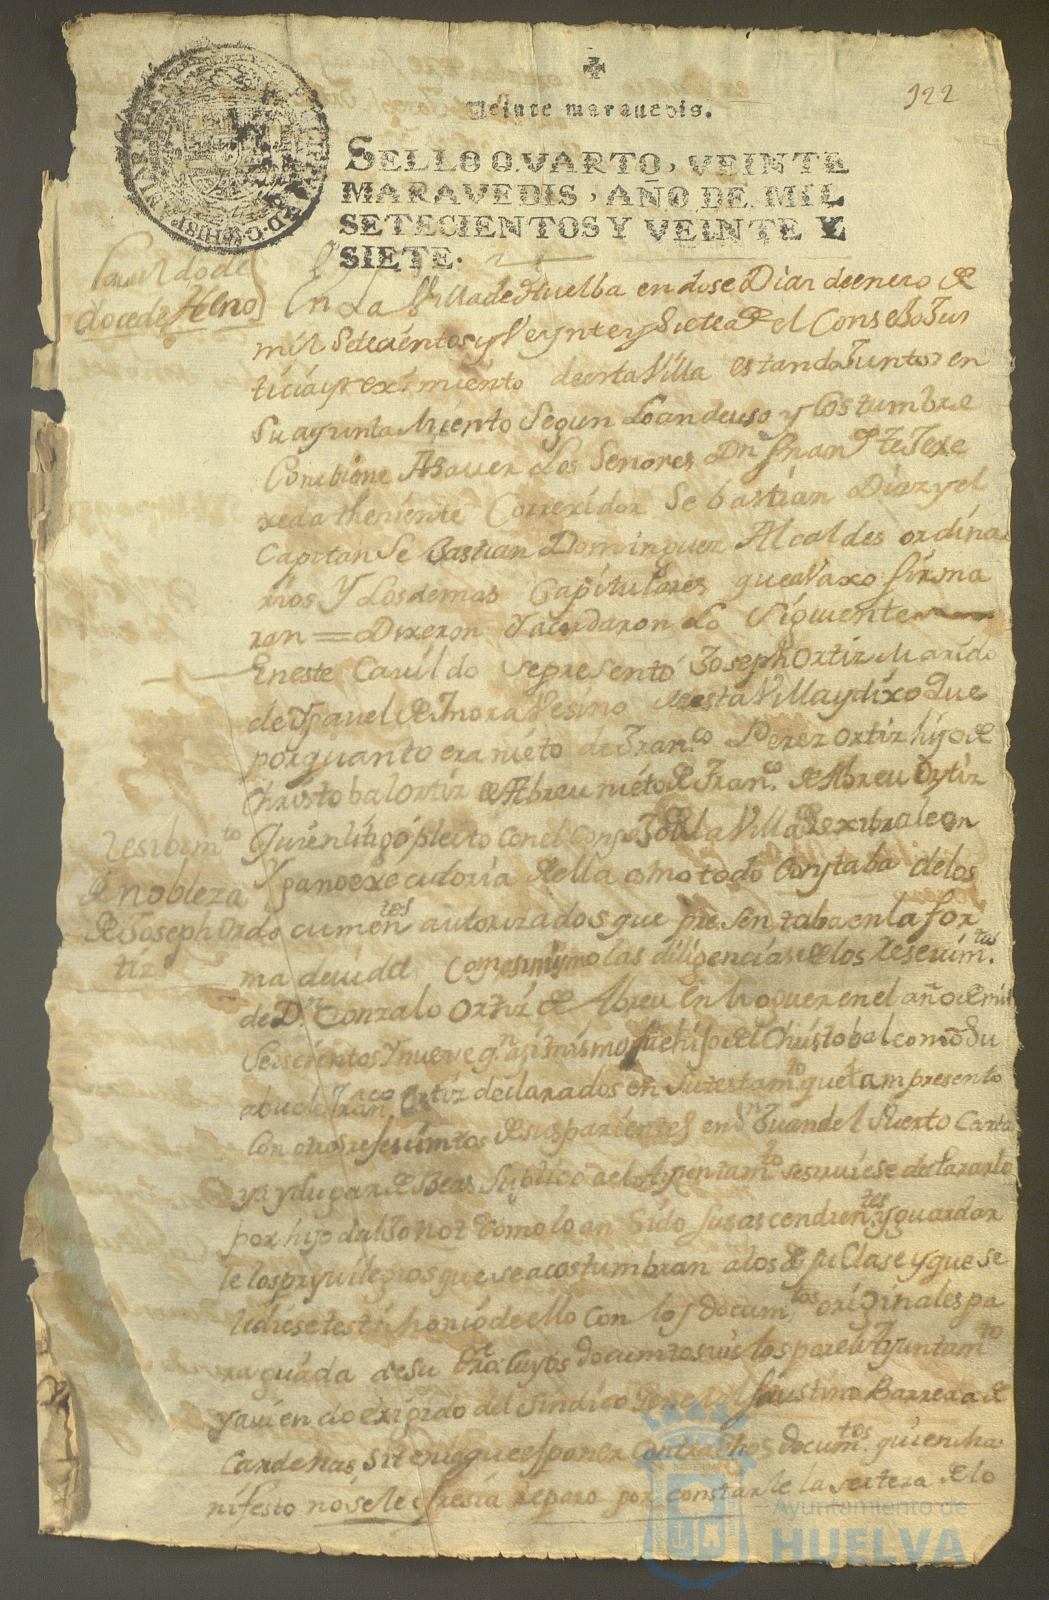 922
Veinte maravedis.
SELLO QVARTO, VEINTE
MARAVEDIS, AÑO DE MIL
SETECIENTOS Y VEINTE Y
SIETE.
Cavildo de
doce de Heno
En La Villa de Huelba en dose Dias de enero de
mil setecientos y Veynte y Siete a el Consejo Jus
ticia y reximiento de esta Villa estando Juntos en
Su ayuntamiento Segun Lo an de uso y Costumbre
Conbiene A Saver Los Señores Dn Fran te Jexe
xeda theniente Correxidor Sebastian Diaz y el
Capitan Sebastian Dominguez Alcaldes ordina
rios Y Los demas Capitulares que avaxo firma
ran = Dixeron Y acordaron Lo Siguiente
En este Cavildo se presento Joseph Ortiz Marido
de Ysavel de Mora Vesino de esta Villa y dixo Que
por quanto era nieto de Franco Perez Ortiz hijo de
Christobal Ortiz de Abreu nieto de Franco de Abreu Ortiz
Quien litigo pleito con el Consejo de la Villa de xibraleon
Y gano executoria de ella como todo Constaba de los
documentes autorizados que presentaba en la for
ma devida Como asimismo las diligencias de los Resevimtos
de Dn Gonzalo Ortiz de Abreu en Moguer en el año de mil
Seiscientos Y nueve qn asimismo fue hijo del Christobal como Su
abuelo Franco Ortiz declarados en Su testamto que tam presento
Con otros resevimtos de sus parientes en Sn Juan del Puerto Carta
ya y Lugar de Beas Suplico a el Ayuntamto se sirviese declararlo
por hijo dalgo not como lo an Sido sus ascendientes y guardar
le los privilegios que se acostumbran a los de su Clase y que se
le diese testimonio de ello con los docum.tos originales pa
ra guarda de su dro Cuyos documtos vistos por el Ayuntamto
y aviendo exigido del Sindico General Faustino Barreda de
Cardenas si tenia que esponer contra dhos docum.tos quien ma
nifesto no se le ofresia reparo por constarle la serteza de lo
Resibimto
de nobleza
de Joseph Or
tiz
Ayuntamiento de
HUELVA